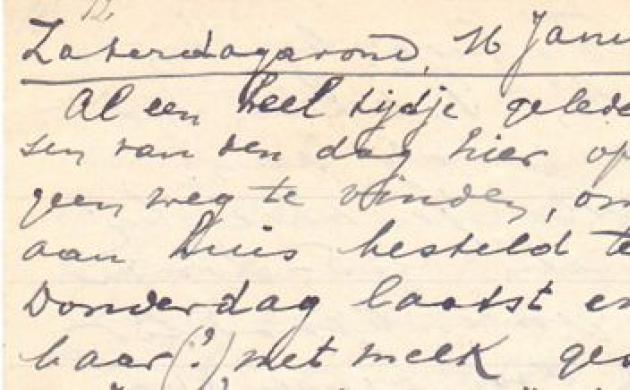 Zaterdagavond, 16 Janu
Al een heel tijdje gelede
sen van den dag hier op
geen weg te vinden, om
aan huis besteld te
Donderdag laatst en
haar (?) met melk ge